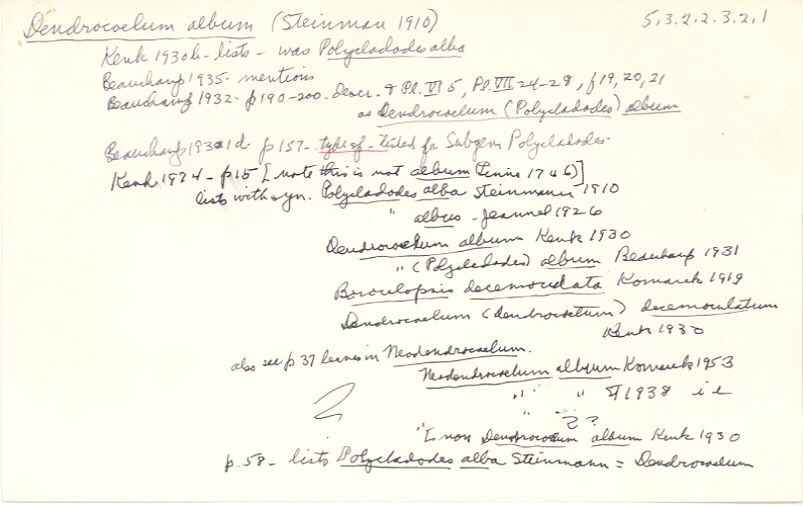 Dendrocoelum album (Steinman 1910) 5.3.2.2.3.2.1
Kenk 1930b - lists - was Polycladodes alba
Beauchamp 1935 - mentions
Beauchamp 1932 - p190-200 - descr. & Pl. VI 5, Pl. VII 24-28, f 19, 20, 21
as Dendrocoelum (Polycladodes) album
Beauchamp 1931d p157 - type of - listed for Subgen Polycladodes -
Kenk 1974 - p15 [note this is not album (Linné 1746)]
lists with syn. Polycladodes alba Steinmann 1910
" albus - Jeannel 1926
Dendrocoelum album Kenk 1930
" (Polycladodes) album Beauchamp 1931
decemoculata Komarek 1919
Dendrocoelum (dendrocoelum) decemoculatum
Kenk 1930
also see p 37 leaves in Neodendrocoelum.
Neodendrocoelum album Komarek 1953
" " 1938 i e
" ??
" [non Dendrocoelum album Kenk 1930
p. 58 - lists Polycladodes alba Steinmann = Dendrocoelum